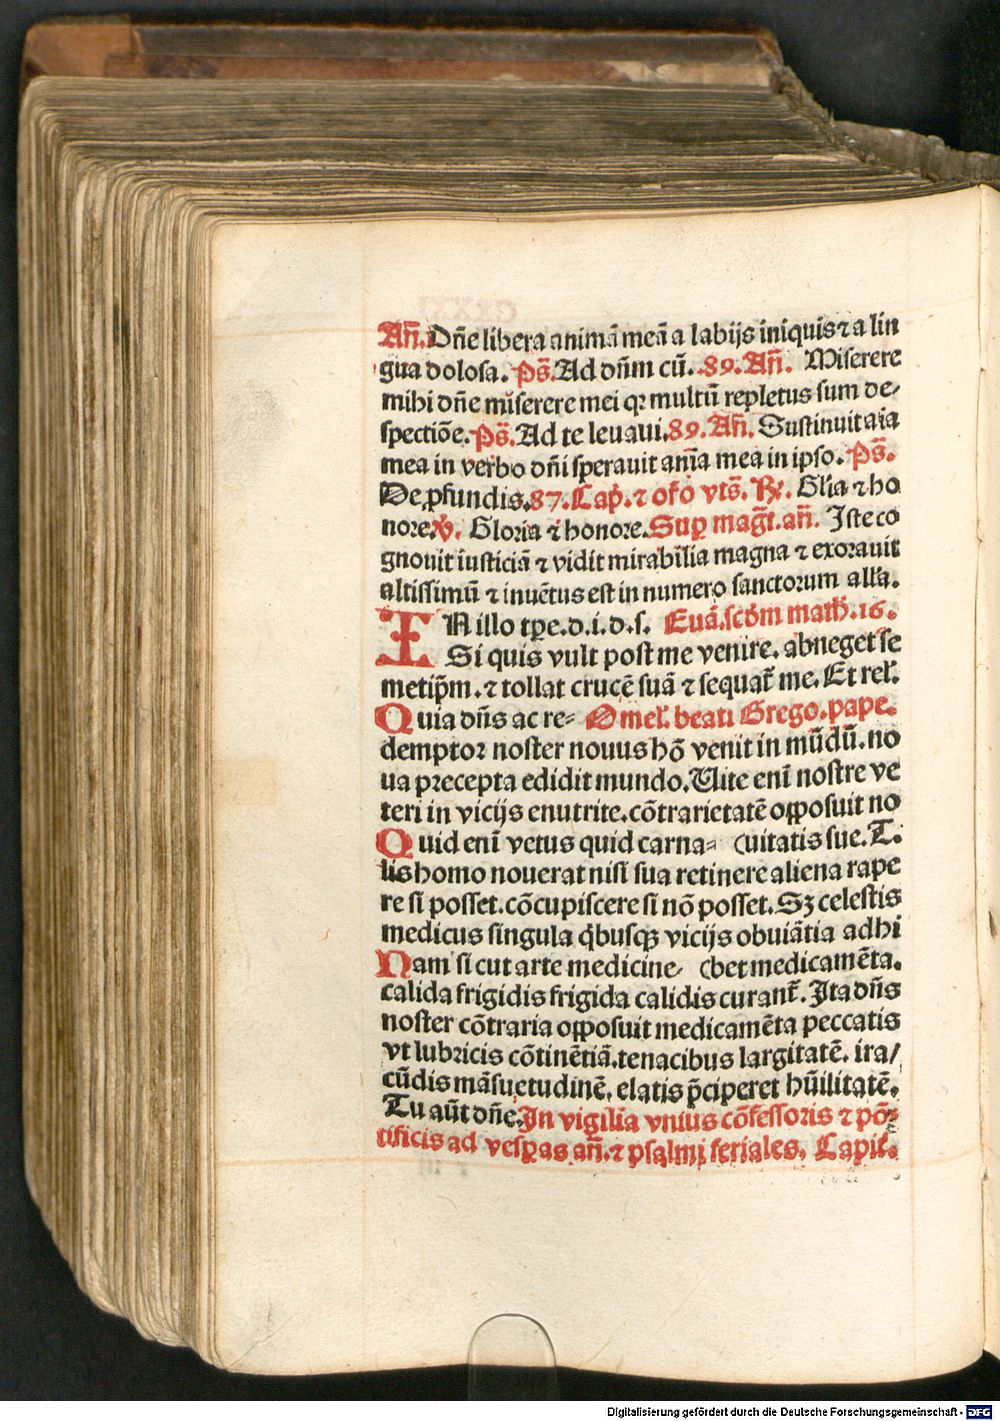 Añ. Dñe libera animā meā a labijs iniquis ⁊ a lin
gua dolosa. Ps̄. Ad dñm cū. 89. Añ. Miserere
mihi dñe miserere mei qꝛ multū repletus sum de⸗
spectiōe. Ps̄. Ad te leuaui. 89. Añ. Sustinuit aīa
mea in verbo dñi sperauit anīa mea in ipso. Ps̄.
De ꝓfundis. 87. Cap̄. ⁊ oꝛ̄o vts̄. ℞. Glīa ⁊ ho
nore. ℣. Gloria ⁊ honore. Suꝑ mag̅t. añ. Iste co
gnouit iusticiā ⁊ vidit mirabilia magna ⁊ exorauit
altissimū ⁊ inuētus est in numero sanctoꝛum all'a.
IN illo tꝑe. d. i. d. s. Euā. scd̄m math̄. 16.
Si quis vult post me venire. abneget se
metip̄m. ⁊ tollat crucē suā ⁊ sequat̄ me. Et rel'.
Quia dñs ac re⸗ Omel'. beati Grego. pape.
demptoꝛ noster nouus hō venit in mūdū. no
ua precepta edidit mundo. Uite enī nostre ve
teri in vicijs enutrite. cōtrarietatē opposuit no
Quid enī vetus quid carna⸗ (uitatis sue. T.
lis homo nouerat nisi sua retinere aliena rape
re si posset. cōcupiscere si nō posset. Sꝫ celestis
medicus singula q̇busqꝫ vicijs obuiātia adhi
Nam sicut arte medicine⸗ (bet medicamēta.
calida frigidis frigida calidis curant̄. Ita dñs
noster cōtraria opposuit medicamēta peccatis
vt lubꝛicis cōtinētiā. tenacibus largitatē. ira/
cūdis māsuetudinē. elatis p̄ciperet hūilitatē.
Tu aūt dñe. In vigilia vnius cōfessoris ⁊ pō⸗
tificis ad vesꝑas añ. ⁊ psalmi feriales. Capil'.
Digitalisierung gefördert durch die Deutsche Forschungsgemeinschaft - DFG